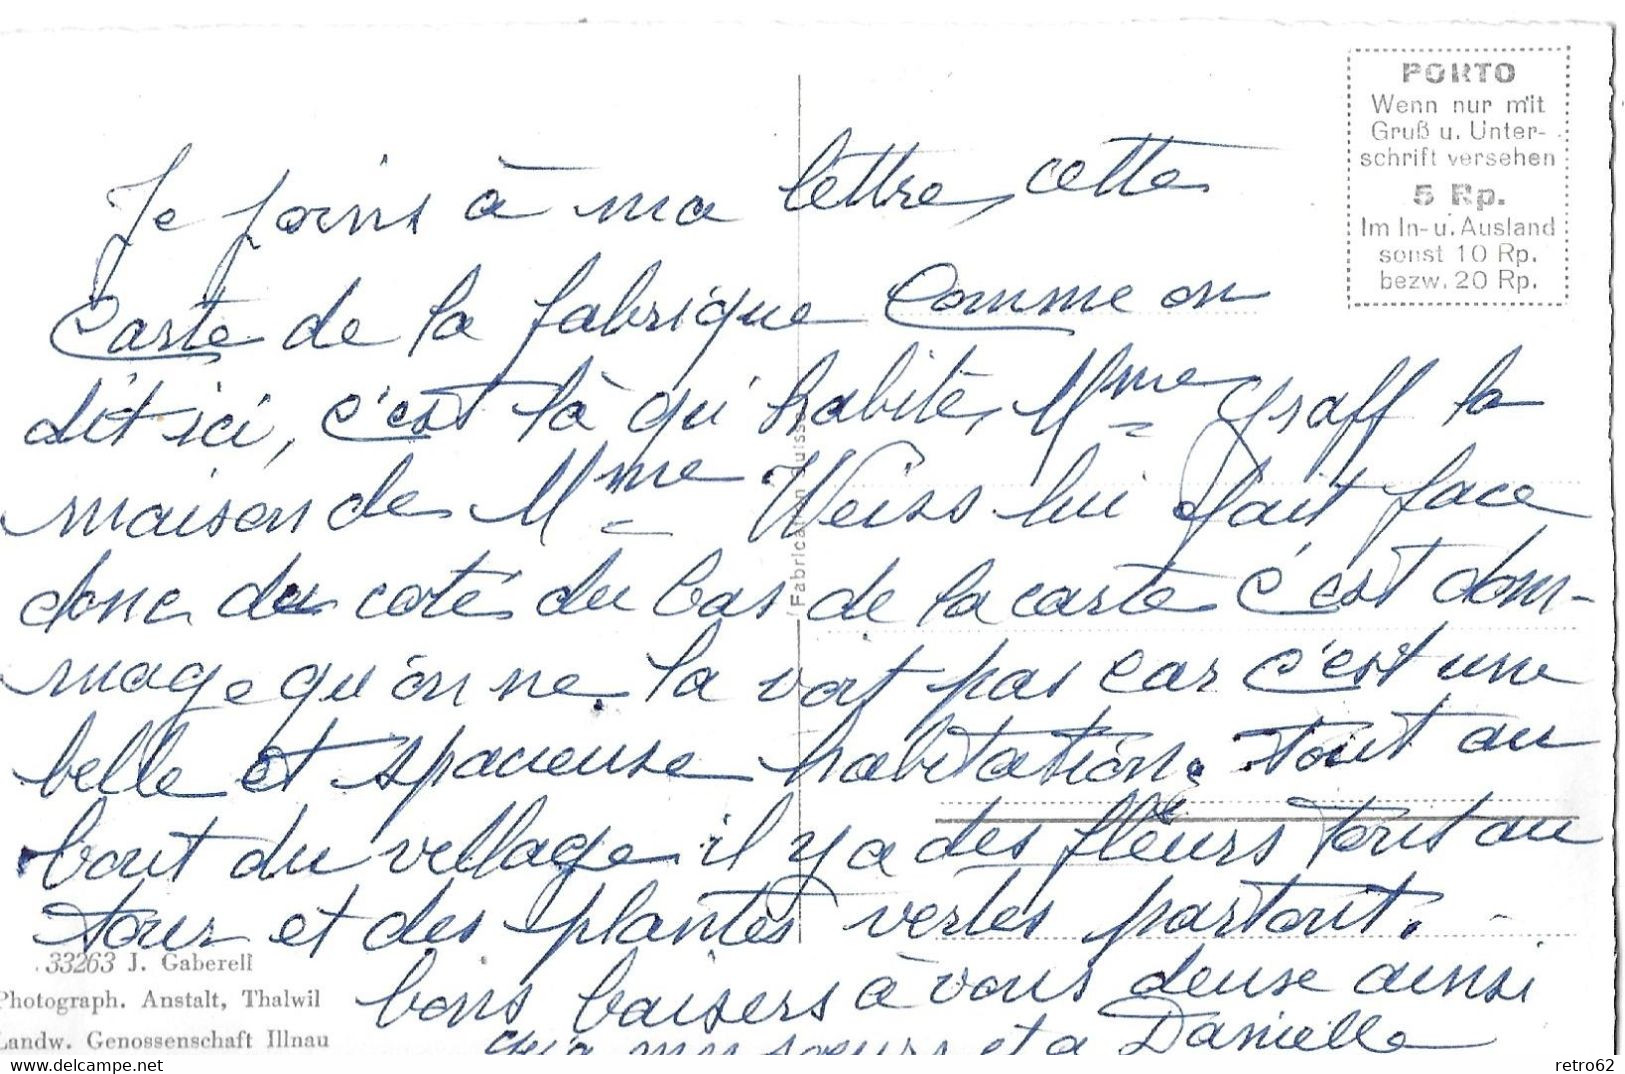 PORTO
Wenn nur mit
Gruß u. Unter-
schrift versehen
5 Rp.
Im In- u. Ausland
sonst 10 Rp.
bezw. 20 Rp.
Je joins à ma lettre, cette
Carte de la fabrique Comme on
dit ici, c'est là qu'habite, Mme Graff la
maison de Mme Weiss lui fait face
donc du coté du bas de la carte c'est dom-
mage qu'on ne la voit pas car c'est une
belle et spacieuse habitation. Tout au
bout du village il y a des fleurs tout au
tour et des plantes vertes partout.
bons baisers à vous deuse ainsi
soeurs et a Danielle
Fabrication Suisse
33263 J. Gaberell
Photograph. Anstalt, Thalwil
Landw. Genossenschaft Illnau
retro62